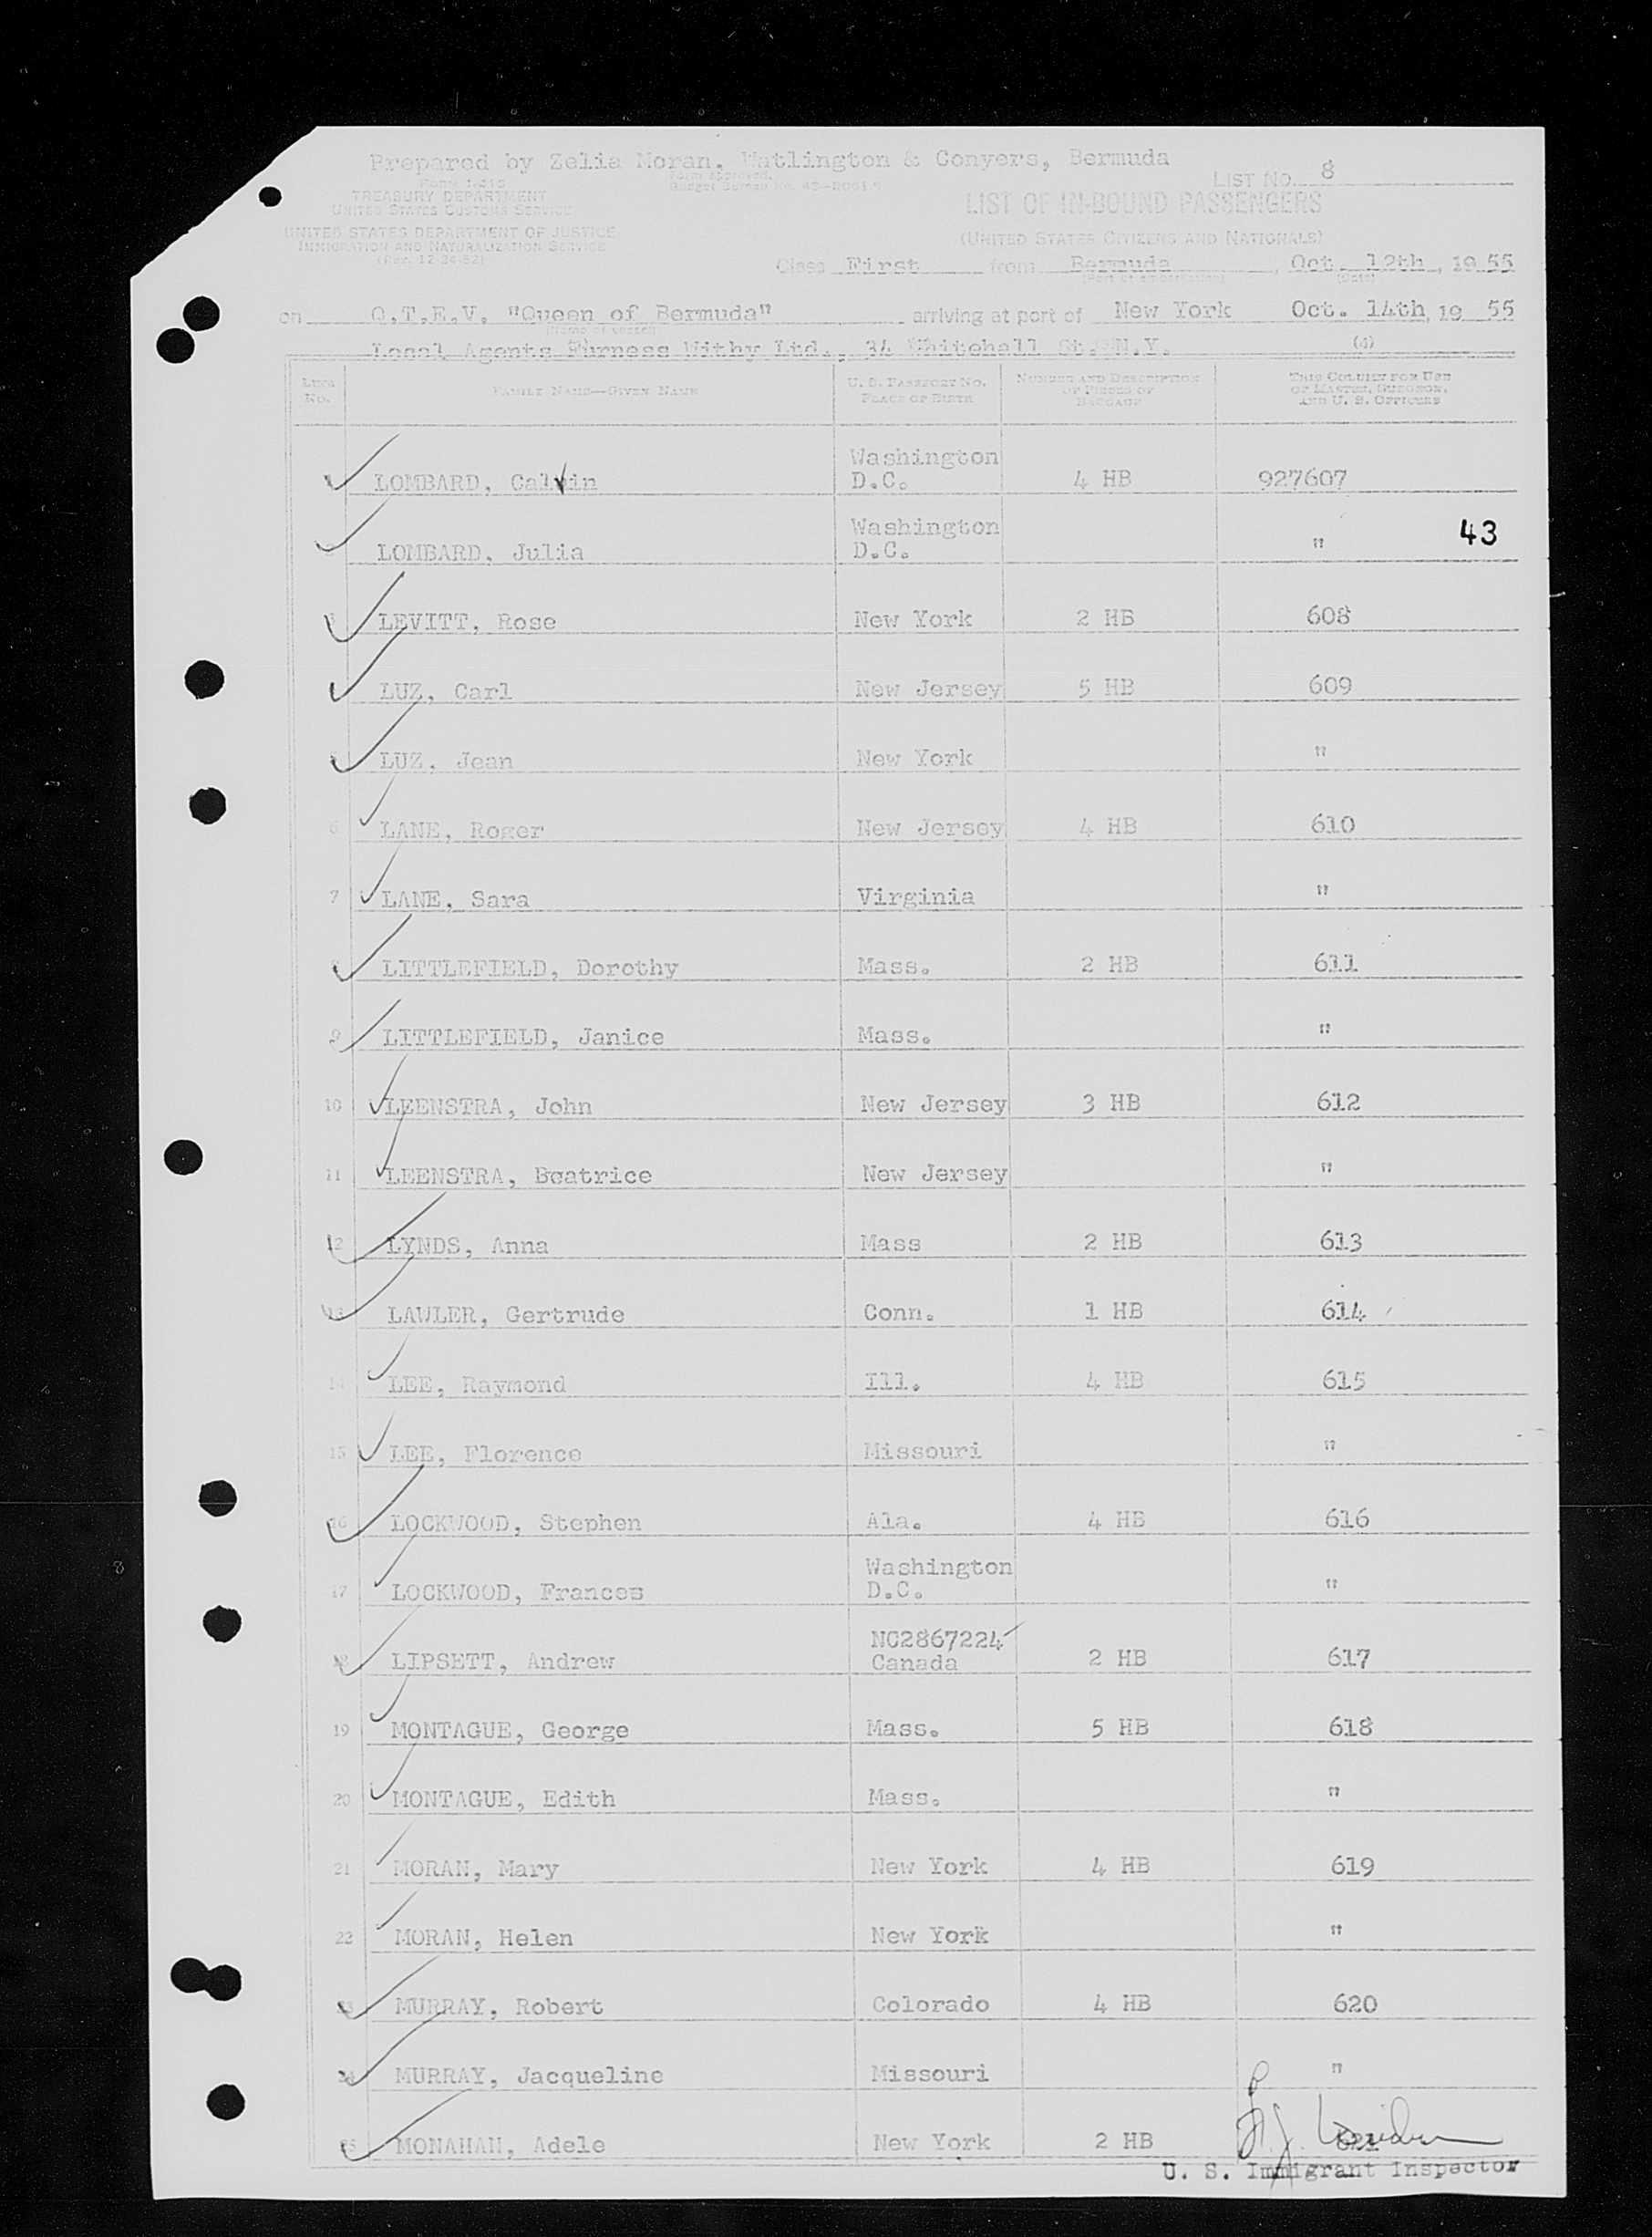 Prepared by Zelia Moran, Watlington & Conyers, Bermuda
Form approved.
LIST NO. 8
TREASURY DEPARTMENT
UNITED STATES CUSTOMS SERVICE
UNITED STATES DEPARTMENT OF JUSTICE
IMMIGRATION AND NATURALIZATION SERVICE
LIST OF IN-BOUND PASSENGERS
(UNITED STATES CITIZENS AND NATIONALS)
Class First from Bermuda, Oct. 12th, 1955
(Port of embarkation) (Date)
on Q.T.E.V. "Queen of Bermuda" arriving at port of New York Oct. 14th, 1955
(Name of vessel)
Local Agents Furness Withy Ltd., 34 Whitehall St. N.Y. (4)
LINE No. FAMILY NAME—GIVEN NAME U. S. PASSPORT NO. PLACE OF BIRTH NUMBER AND DESCRIPTION OF PIECES OF BAGGAGE THIS COLUMN FOR USE OF MASTER, SURGEON, AND U. S. OFFICERS
1 LOMBARD, Calvin Washington D.C. 4 HB 927607
2 LOMBARD, Julia Washington D.C. " 43
3 LEVITT, Rose New York 2 HB 608
4 LUZ, Carl New Jersey 5 HB 609
5 LUZ, Jean New York "
6 LANE, Roger New Jersey 4 HB 610
7 LANE, Sara Virginia "
8 LITTLEFIELD, Dorothy Mass. 2 HB 611
9 LITTLEFIELD, Janice Mass. "
10 LEENSTRA, John New Jersey 3 HB 612
11 LEENSTRA, Beatrice New Jersey "
12 LYNDS, Anna Mass 2 HB 613
13 LAWLER, Gertrude Conn. 1 HB 614
14 LEE, Raymond Ill. 4 HB 615
15 LEE, Florence Missouri "
16 LOCKWOOD, Stephen Ala. 4 HB 616
17 LOCKWOOD, Frances Washington D.C. "
18 LIPSETT, Andrew NC2867224 Canada 2 HB 617
19 MONTAGUE, George Mass. 5 HB 618
20 MONTAGUE, Edith Mass. "
21 MORAN, Mary New York 4 HB 619
22 MORAN, Helen New York "
23 MURRAY, Robert Colorado 4 HB 620
24 MURRAY, Jacqueline Missouri "
25 MONAHAN, Adele New York 2 HB 621
U. S. Immigrant Inspector